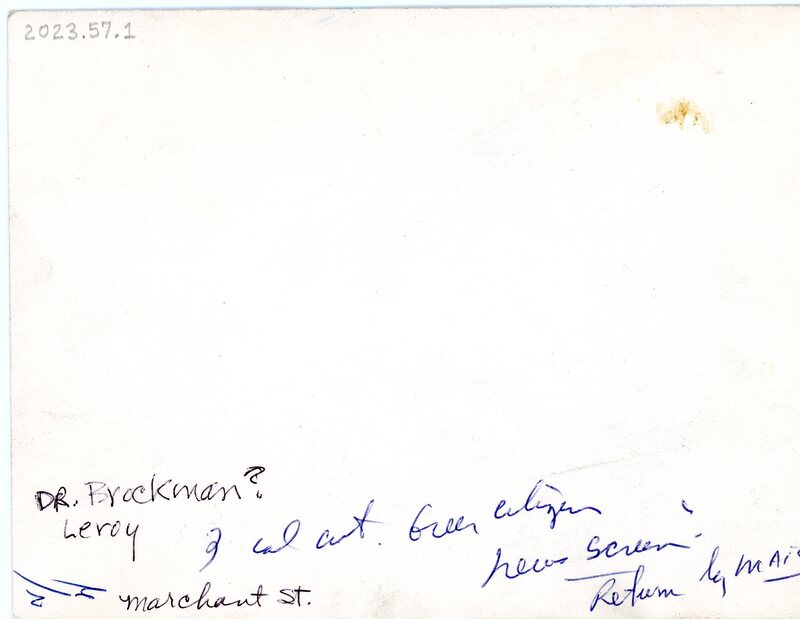 2023.57.1
DR. Brockman?
Leroy
3 col cut. Green citizen
news screen
Return by MAIL
marchant St.